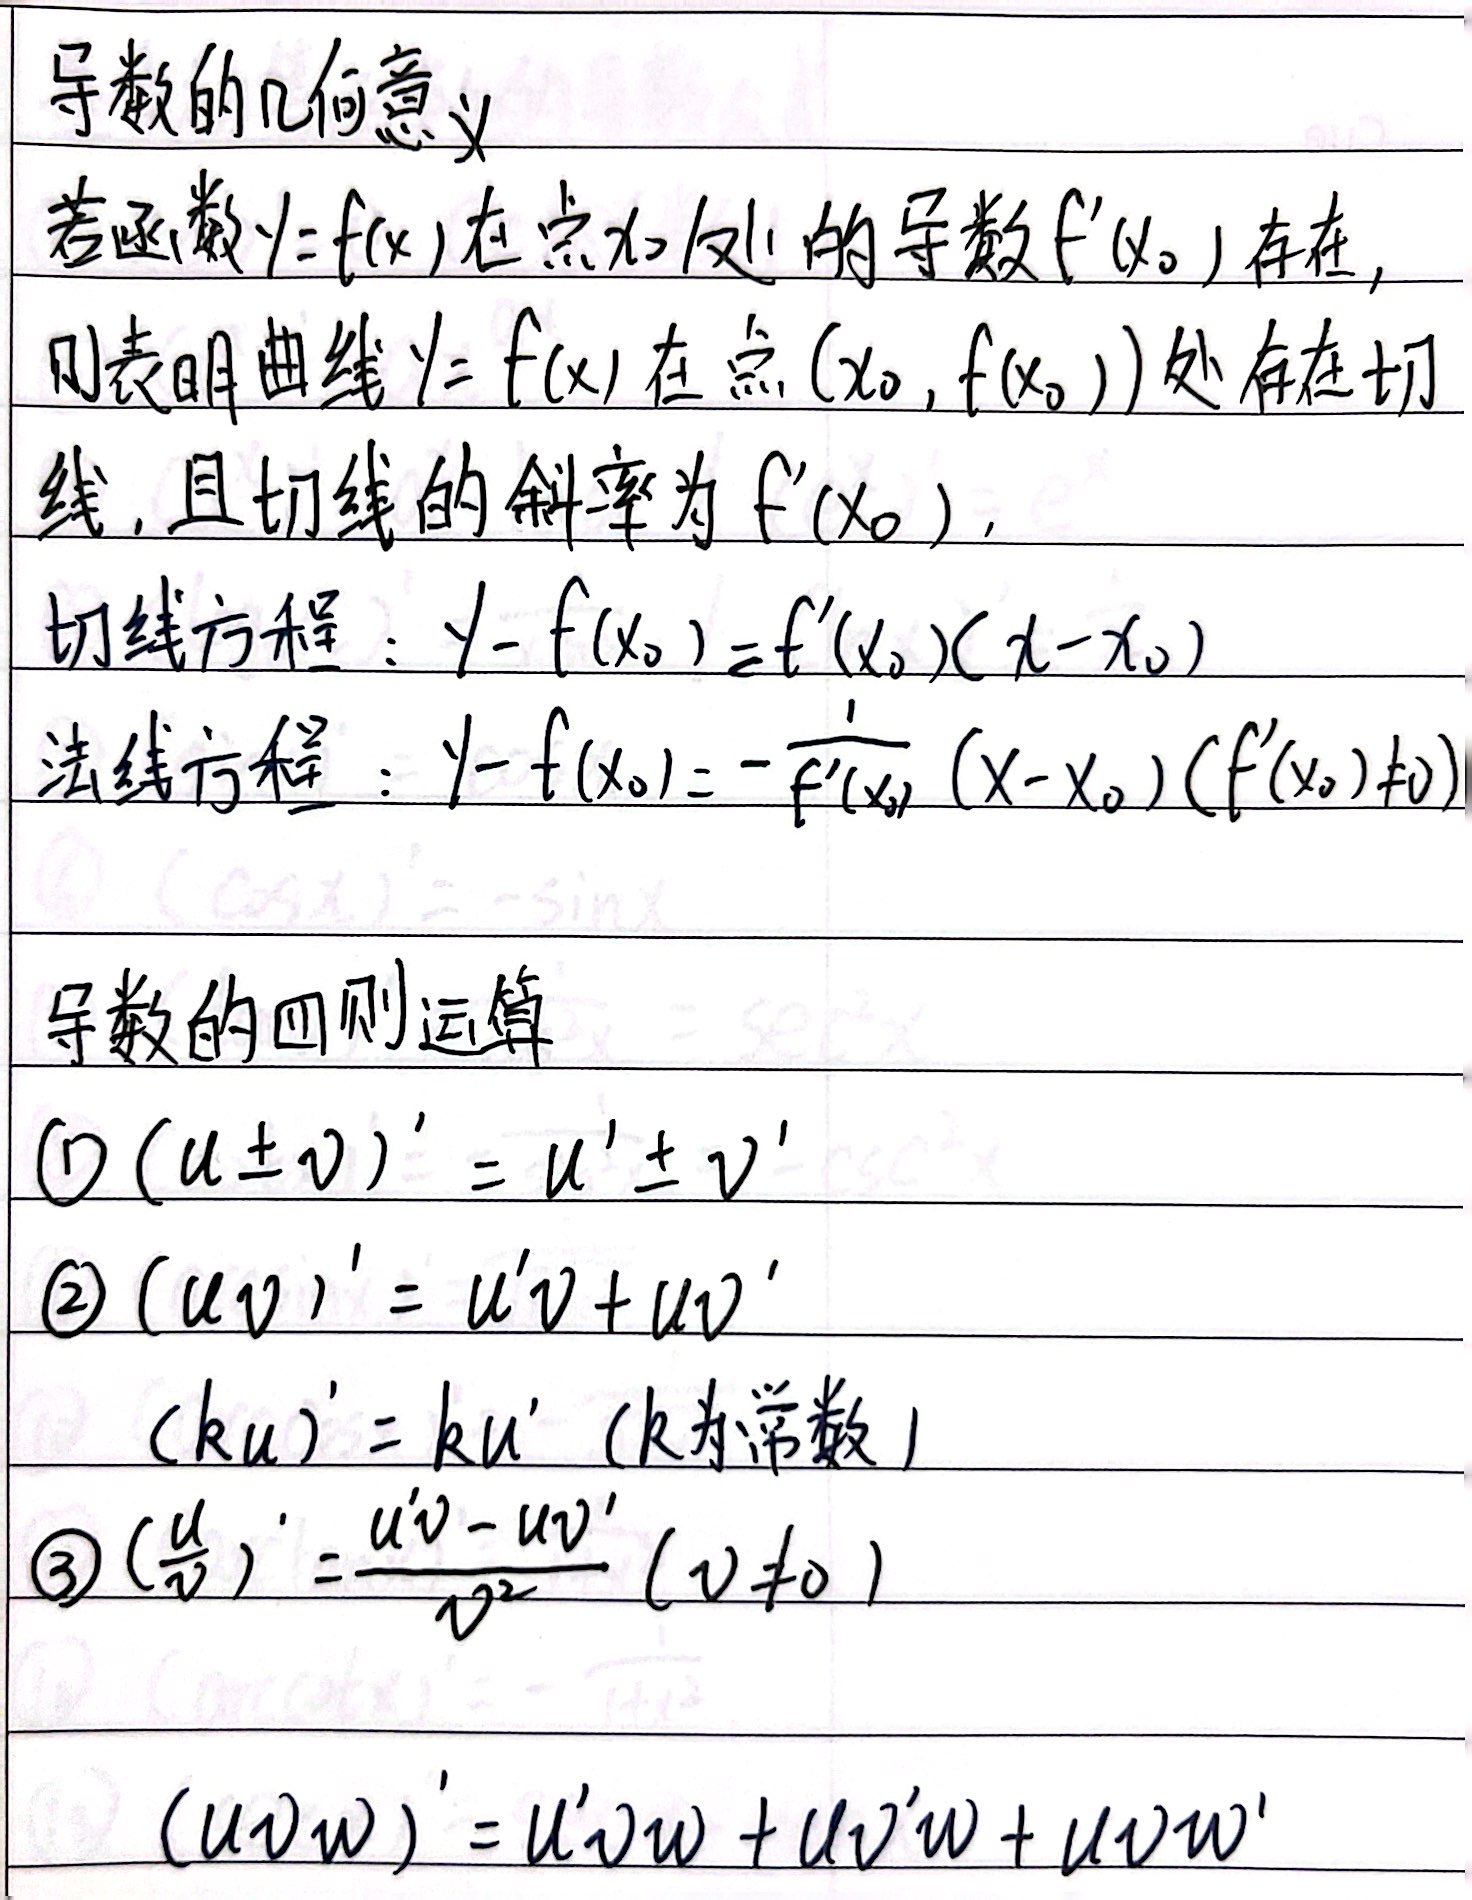 导数的几何意义
若函数y=f(x)在点x₀处的导数f'(x₀)存在,
则表明曲线y=f(x)在点(x₀,f(x₀))处存在切
线,且切线的斜率为f'(x₀),
切线方程:y-f(x₀)=f'(x₀)(x-x₀)
法线方程:y-f(x₀)=-1/f'(x₀) (x-x₀)(f'(x₀)≠0)
导数的四则运算
①(u±v)'=u'±v'
②(uv)'=u'v+uv'
(ku)'=ku' (k为常数)
③(u/v)'=(u'v-uv')/v² (v≠0)
(uvw)'=u'vw+uv'w+uvw'